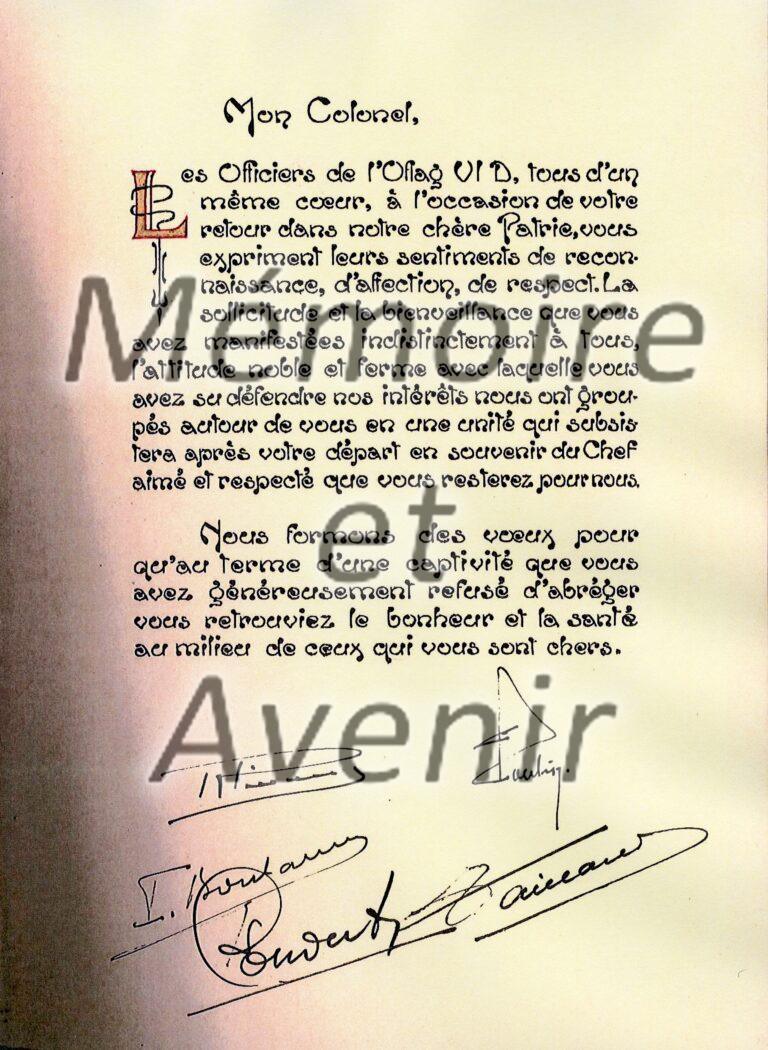 Mon Colonel,
Les Officiers de l'Oflag VI D, tous d'un
même cœur, à l'occasion de votre
retour dans notre chère Patrie, vous
expriment leurs sentiments de recon-
naissance, d'affection, de respect. La
sollicitude et la bienveillance que vous
avez manifestées indistinctement à tous,
l'attitude noble et ferme avec laquelle vous
avez su défendre nos intérêts nous ont grou-
pés autour de vous en une unité qui subsis-
tera après votre départ en souvenir du Chef
aimé et respecté que vous resterez pour nous.
Nous formons des vœux pour
qu'au terme d'une captivité que vous
avez généreusement refusé d'abréger
vous retrouviez le bonheur et la santé
au milieu de ceux qui vous sont chers.
Mémoire
et
Avenir